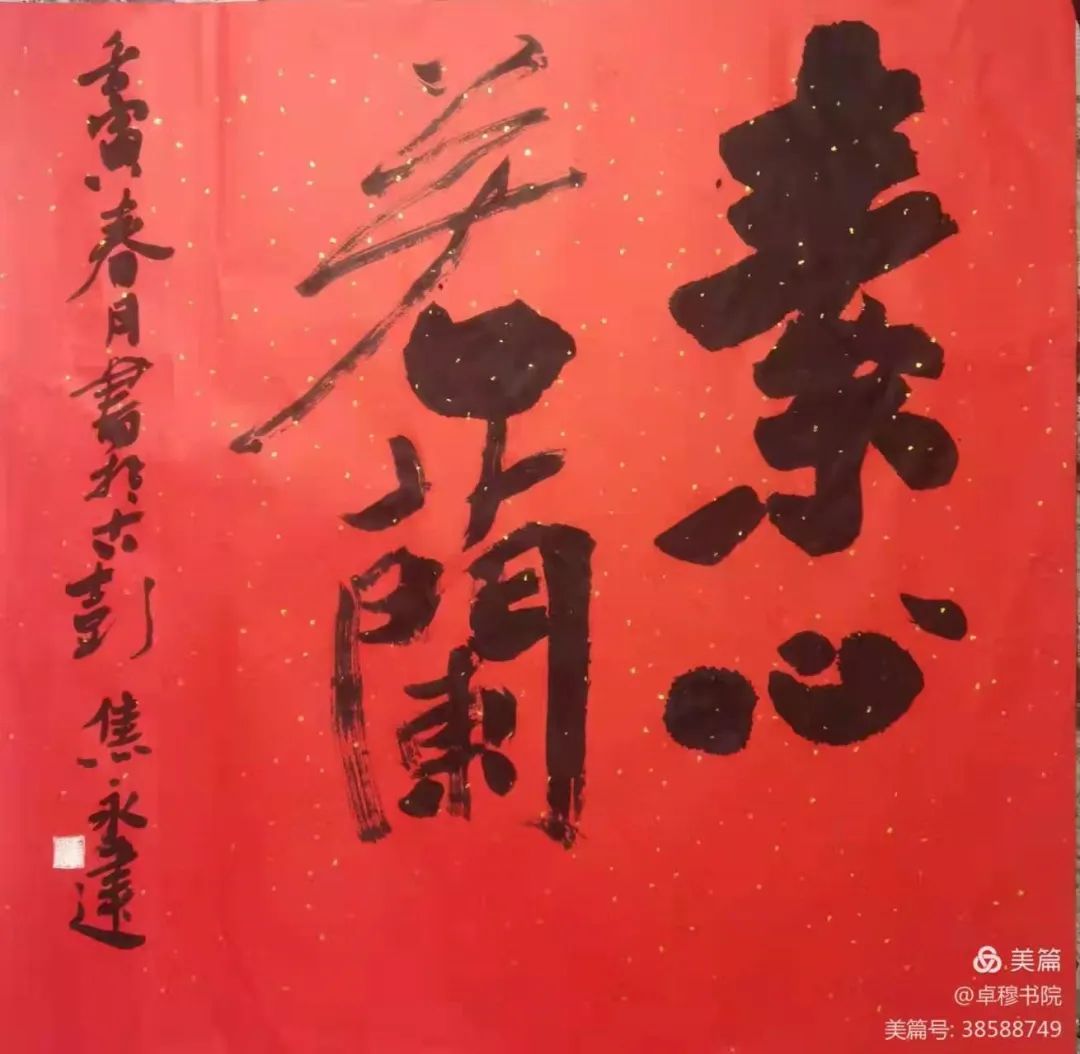 素心
若蘭
壬寅春月書於古彭 焦永達
美篇
@卓穆书院
美篇号: 38588749